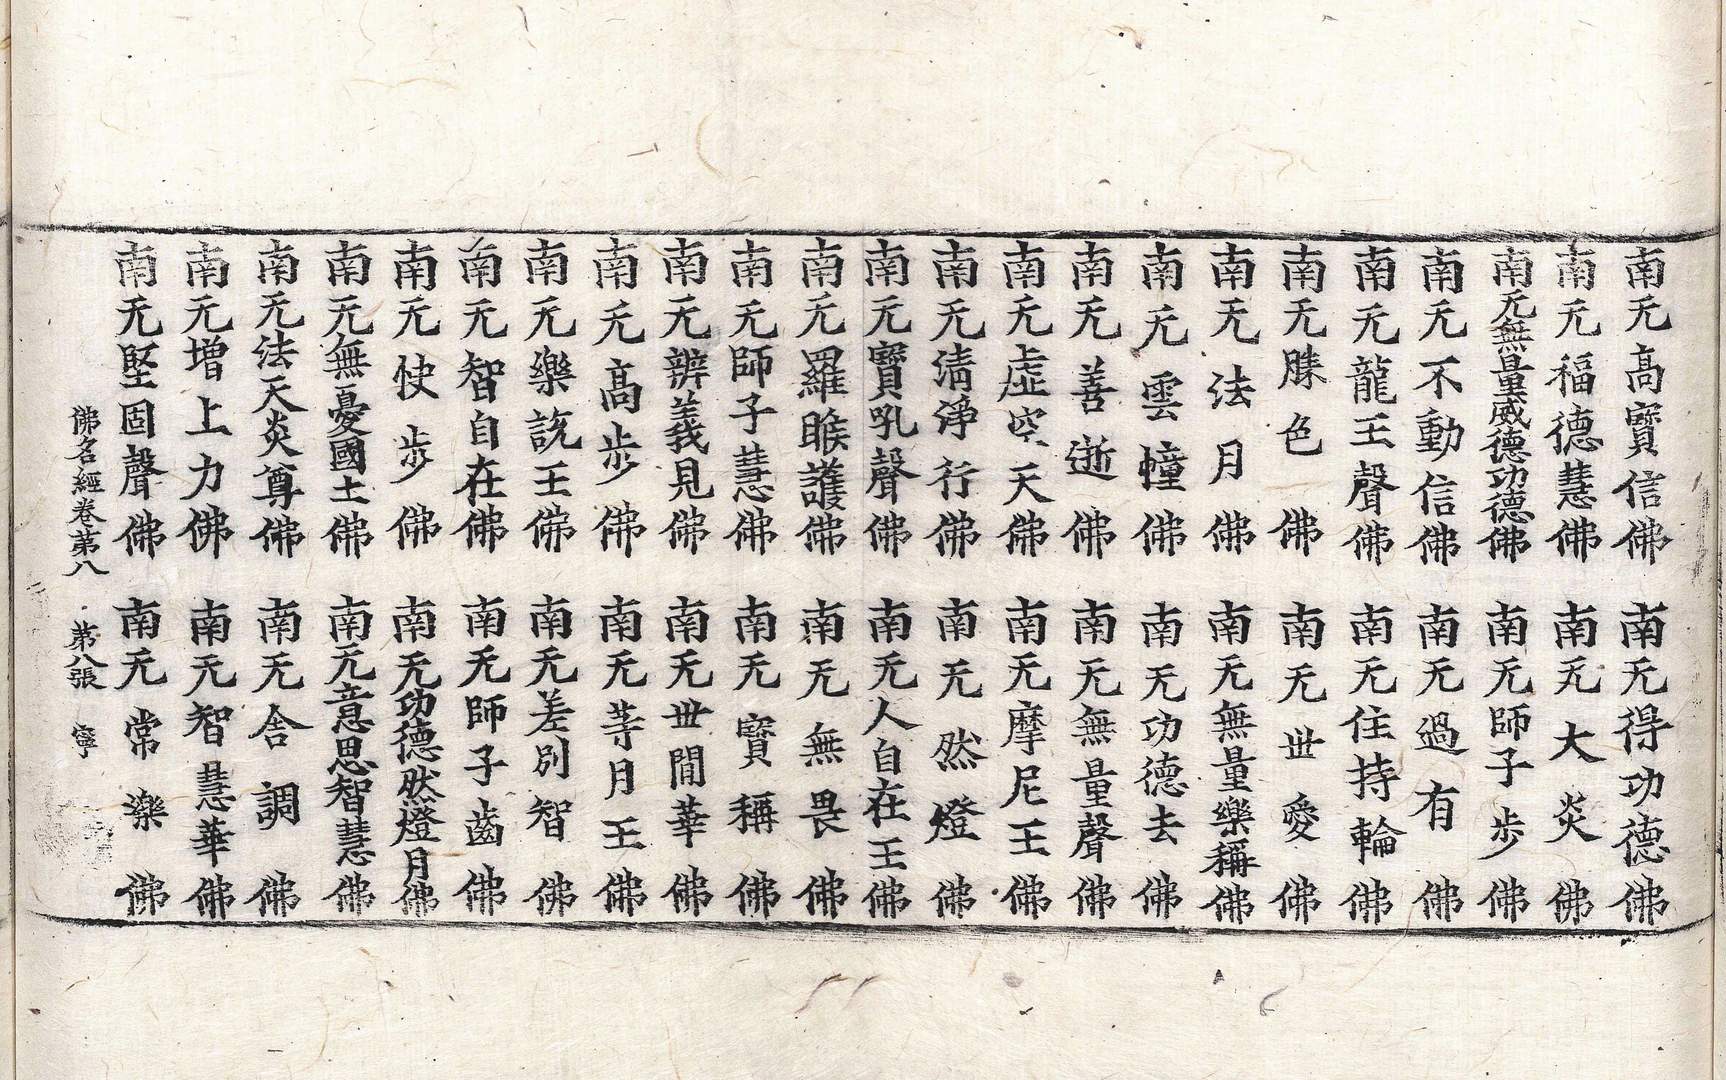 南无高寳信佛　南无得功德佛
南无福德慧佛　南无大炎佛
南无無量威德功德佛　南无師子步佛
南无不動信佛　南无過有佛
南无龍王聲佛　南无住持輪佛
南无勝色佛　南无世愛佛
南无法月佛　南无無量樂稱佛
南无雲幢佛　南无功德去佛
南无善逝佛　南无無量聲佛
南无虛空天佛　南无摩尼王佛
南无清淨行佛　南无然燈佛
南无寳吼聲佛　南无人自在王佛
南无羅睺護佛　南无無畏佛
南无師子慧佛　南无寳稱佛
南无辨義見佛　南无世間華佛
南无高步佛　南无等月王佛
南无樂說王佛　南无差別智佛
南无智自在佛　南无師子齒佛
南无快步佛　南无功德然燈月佛
南无無憂國土佛　南无意思智慧佛
南无法天炎尊佛　南无舍調佛
南无增上力佛　南无智慧華佛
南无堅固聲佛　南无常樂佛
佛名經卷第八　第八張　寧